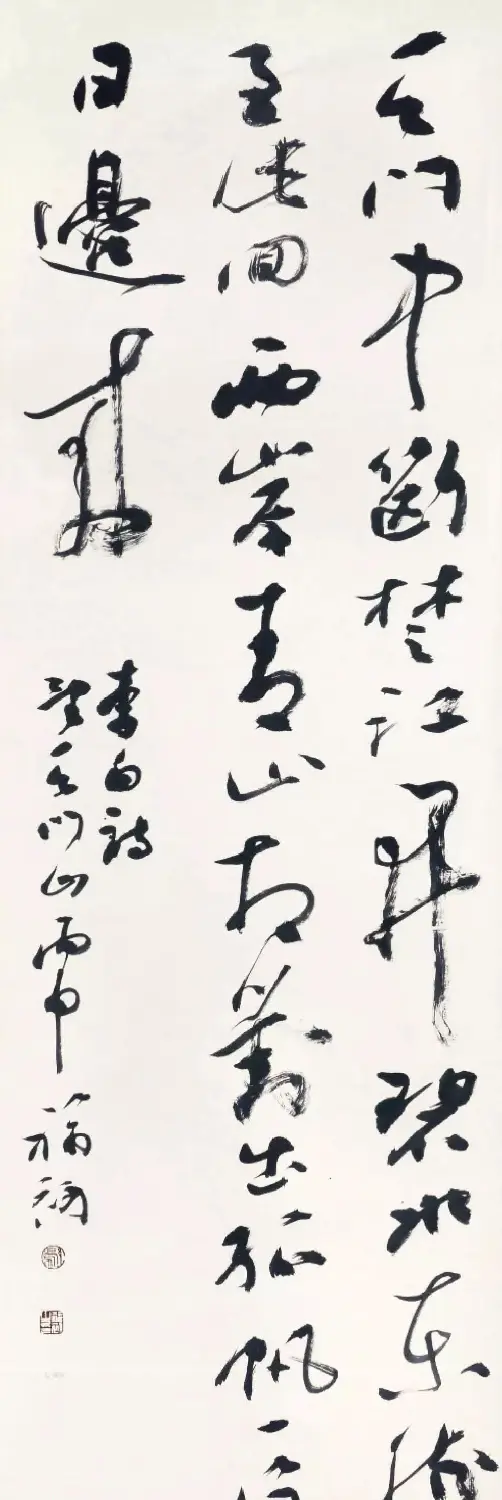 天門中斷楚江開碧水東流
至此回兩岸青山相對出孤帆一片
日邊來
李白詩
望天門山丙申